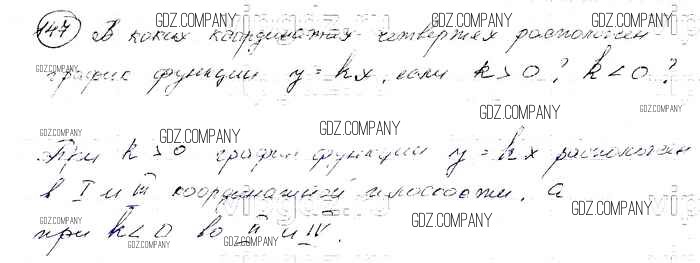 147 В каких координатах четвертях расположен
график функции y = kx, если k > 0? k < 0?
При k > 0 график функции y = kx расположен
в I и III координатной плоскости, а
при k < 0 во II и IV.
GDZ.COMPANY
GDZ.COMPANY
GDZ.COMPANY
GDZ.COMPANY
GDZ.COMPANY
GDZ.COMPANY
GDZ.COMPANY
GDZ.COMPANY
GDZ.COMPANY
GDZ.COMPANY
GDZ.COMPANY
GDZ.COMPANY
GDZ.COMPANY